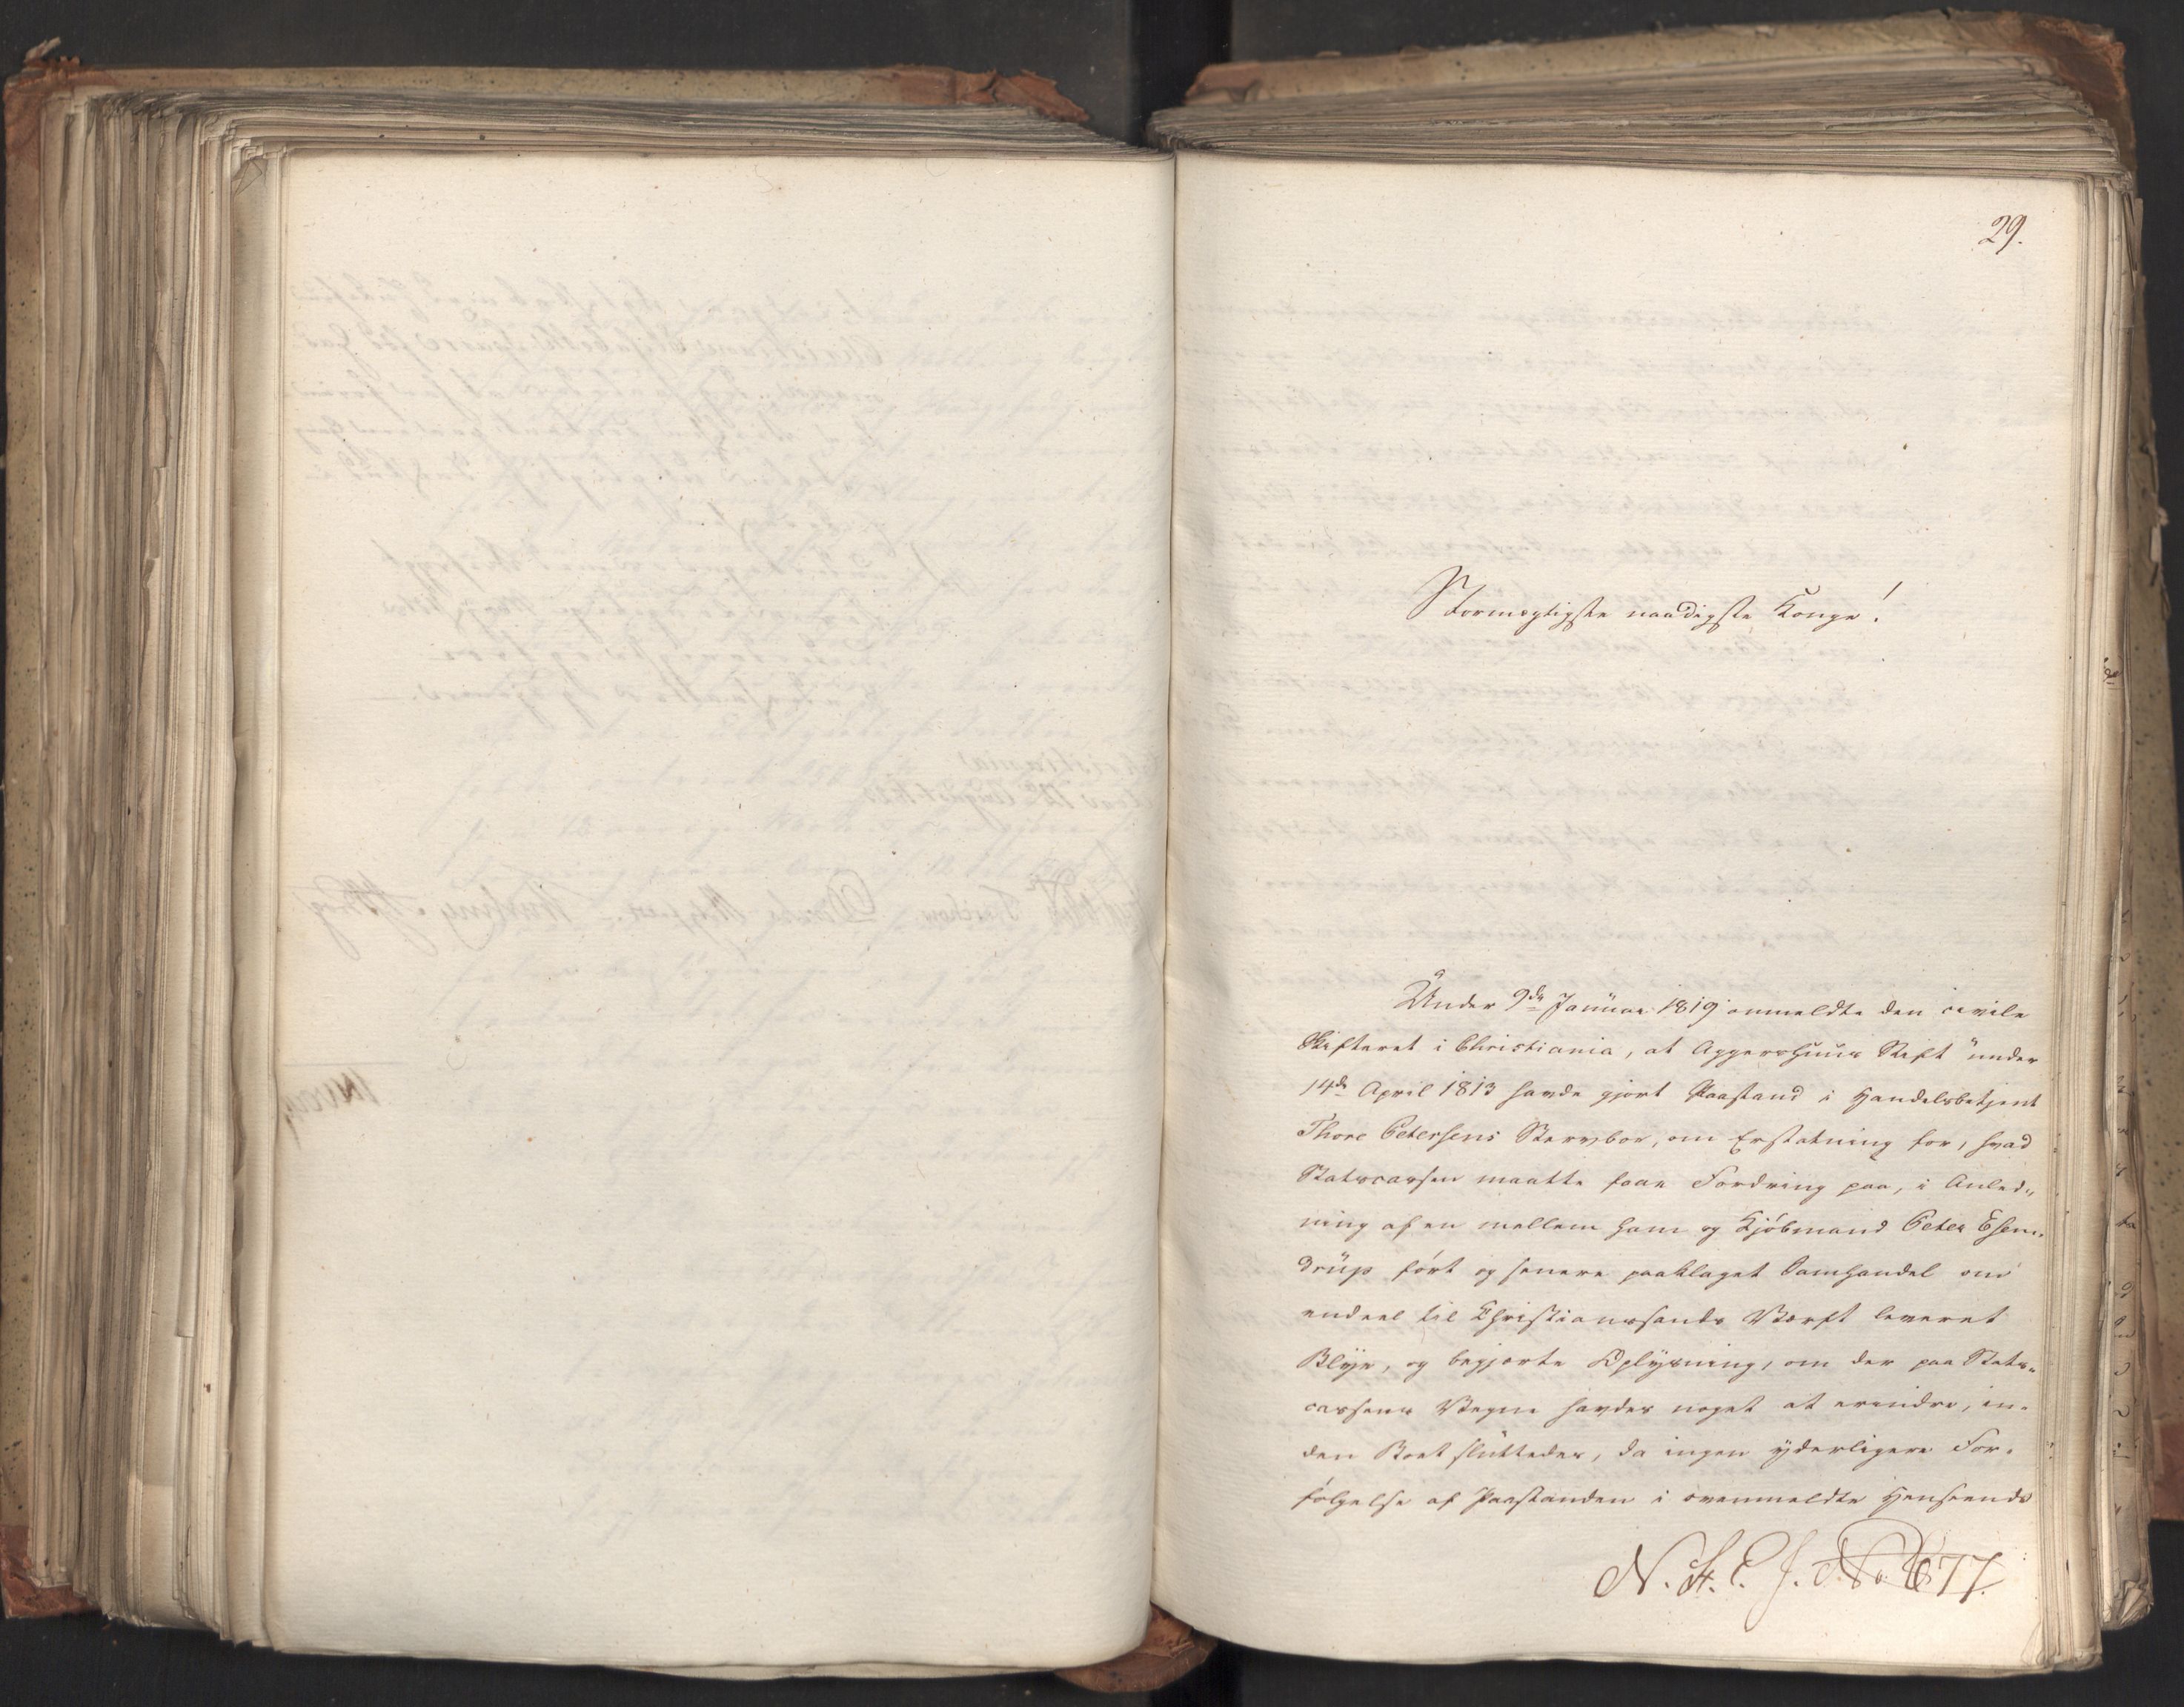 29.
Stormægtigste naadigste Konge!
Under 9de Januar 1819 anmeldte den civile
Skifteret i Christiania, at Aggershuus Stift under
14de April 1813 havde gjort Paastand i Handelsbetjent
Thore Petersens Stervboe, om Erstatning for, hvad
Statscassen maatte faae Fordring paa, i Anled„
ning af en mellem ham og Kjöbmand Peter Esen„
drup fört og senere paaklaget Samhandel om
endeel til Christianssands Værft leveret
Blye, og begjerte Oplysning, om der paa Stats„
cassens Vegne havdes noget at erindre, in„
den Boet sluttedes, da ingen yderligere For„
fölgelse af Paastanden i ovenmeldte Henseende
N. St. C. J. No. 677.